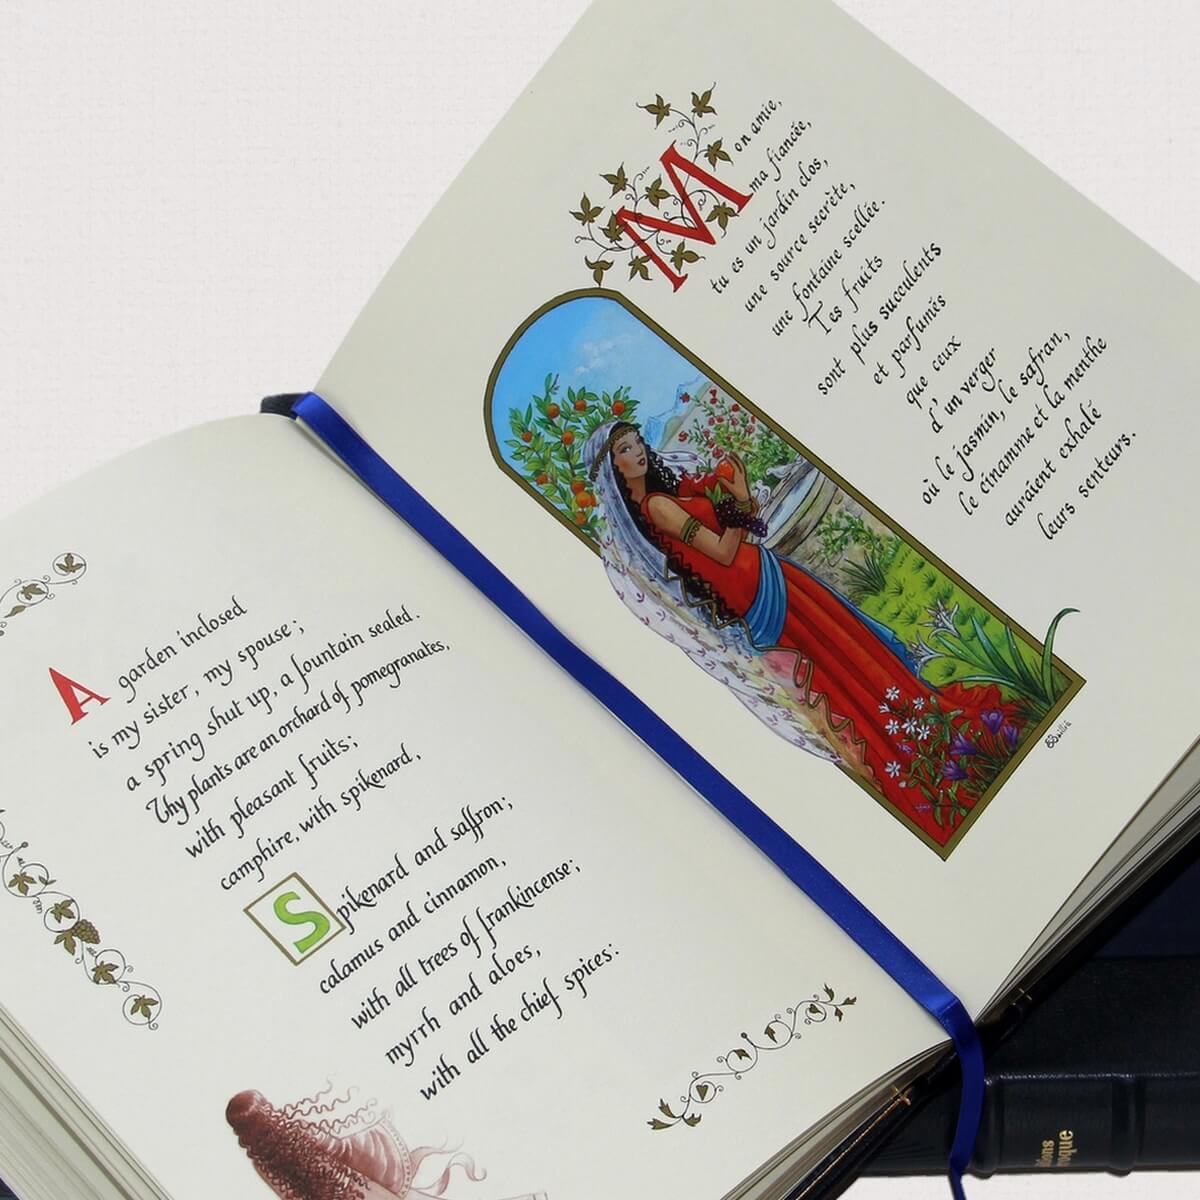 A garden inclosed
is my sister, my spouse;
a spring shut up, a fountain sealed.
Thy plants are an orchard of pomegranates,
with pleasant fruits;
camphire, with spikenard,
Spikenard and saffron;
calamus and cinnamon,
with all trees of frankincense;
myrrh and aloes,
with all the chief spices:
Mon amie,
ma fiancée,
tu es un jardin clos,
une source secrète,
une fontaine scellée.
Tes fruits
sont plus succulents
et parfumés
que ceux
d'un verger
où le jasmin, le safran,
le cinamme et la menthe
auraient exhalé
leurs senteurs.